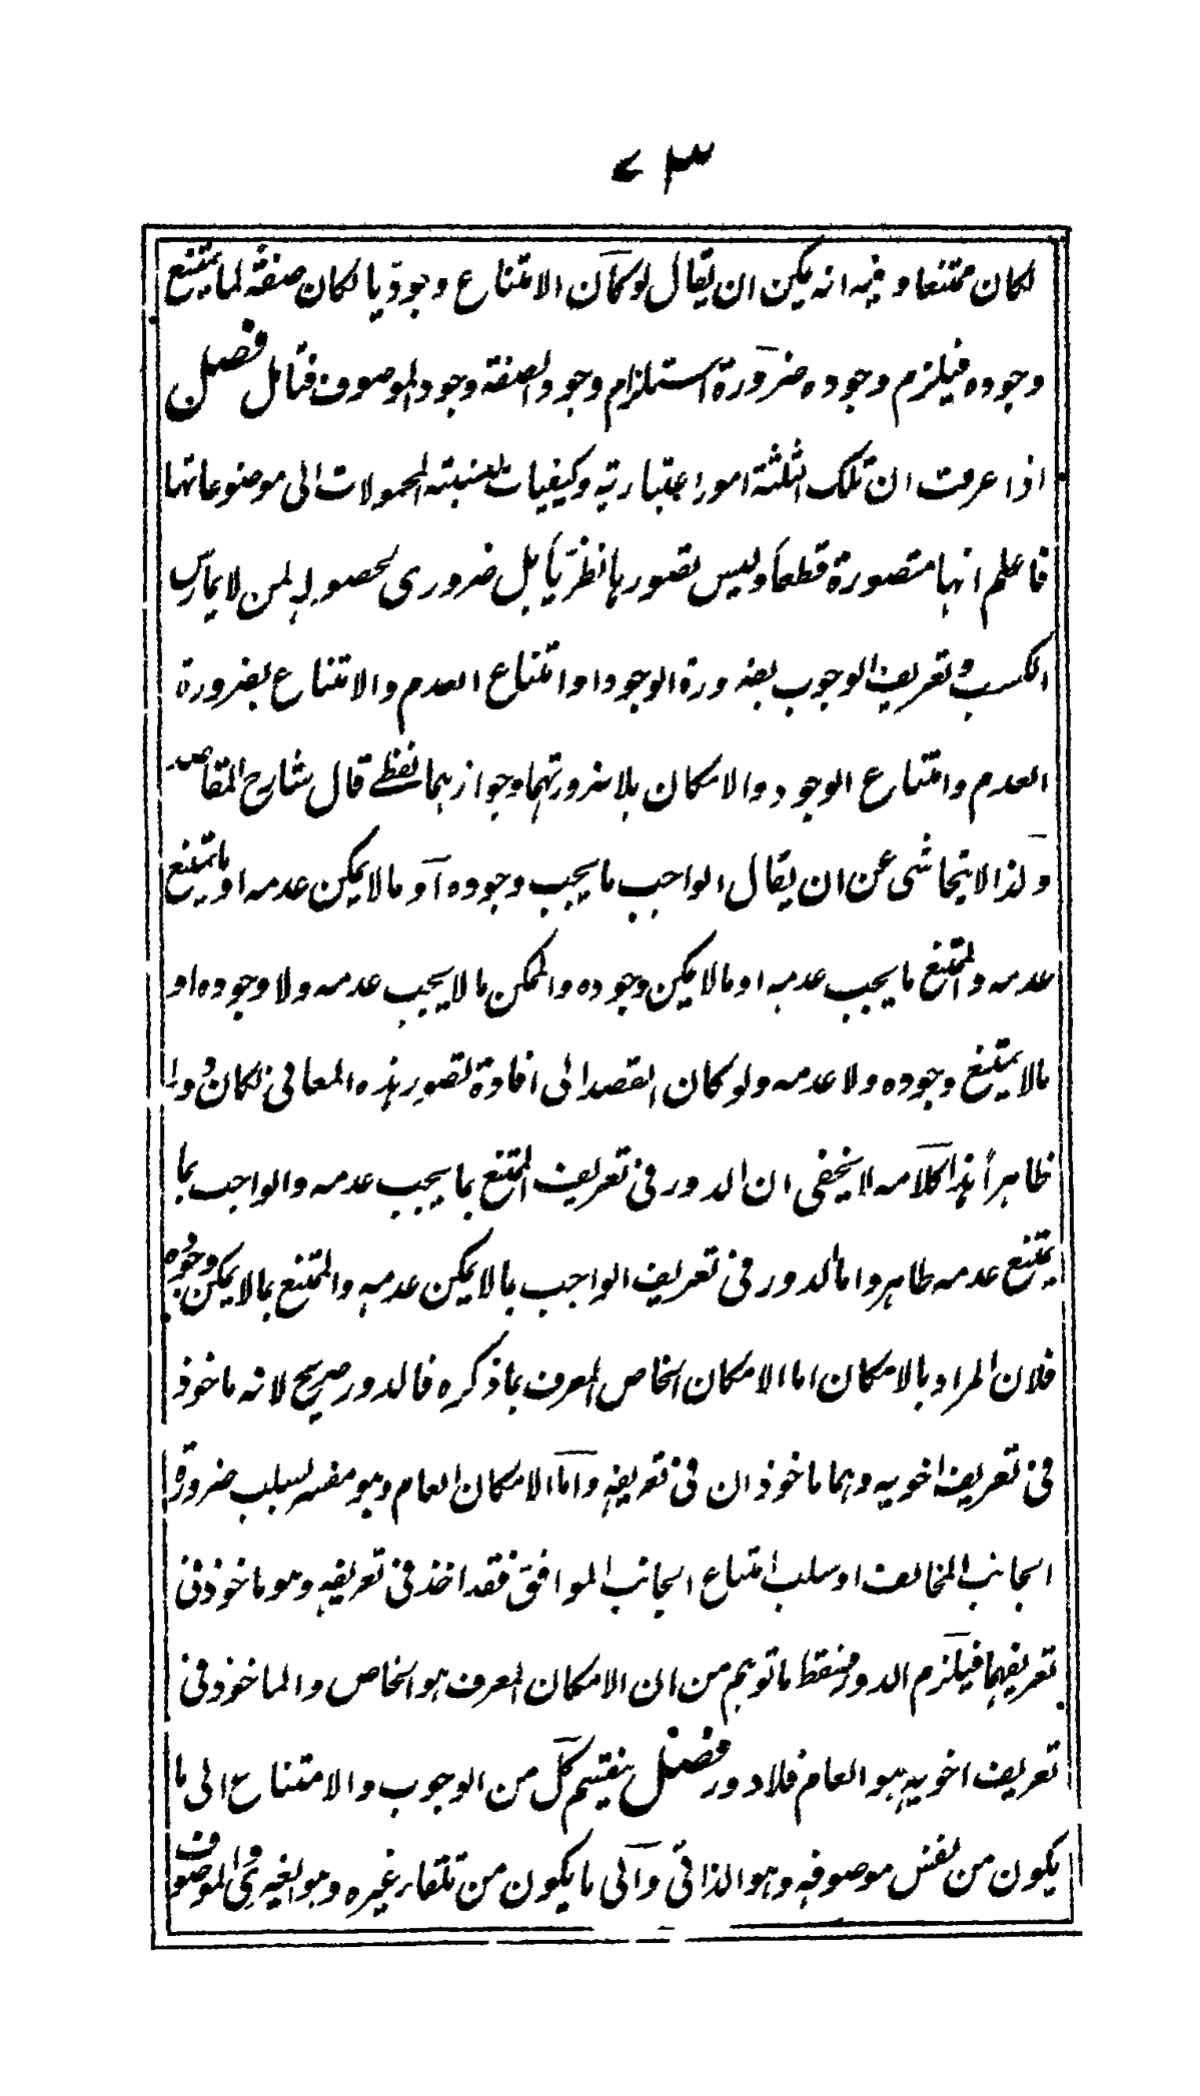 ٧٣
لكان ممتنعا وفيه انه يمكن ان يقال لو كان الامتناع وجوديا لكان صفة لما يمتنع
وجوده فيلزم وجوده ضرورة استلزام وجود الصفة وجود الموصوف فتامل فصل
اذا عرفت ان تلك الثلثة امور اعتبارية وكيفيات لنسبة المحمولات الى موضوعاتها
فاعلم انها متصورة قطعا وليس تصورها نظريا بل ضروري لحصوله لمن لا يمارس
الكسب وتعريف الوجوب بضرورة الوجود او امتناع العدم والامتناع بضرورة
العدم وامتناع الوجود والامكان بلا ضرورتهما وجوازهما لفظي قال شارح المقاصد
ولذا لا يتحاشى عن ان يقال الواجب ما يجب وجوده او ما لا يمكن عدمه او ما يمتنع
عدمه والممتنع ما يجب عدمه او ما لا يمكن وجوده والممكن ما لا يجب عدمه ولا وجوده او
ما لا يمتنع وجوده ولا عدمه ولو كان القصد الى افادة تصور هذه المعاني لكان دورا
ظاهرا هذا كلامه لا يخفى ان الدور في تعريف الممتنع بما يجب عدمه والواجب بما
يمتنع عدمه ظاهر واما الدور في تعريف الواجب بما لا يمكن عدمه والممتنع بما لا يمكن وجوده
فلان المراد بالامكان اما الامكان الخاص المعرف بما ذكره فالدور صريح لانه ماخوذ
في تعريف اخويه وهما ماخوذان في تعريفه واما الامكان العام وهو مفسر بسلب ضرورة
الجانب المخالف او سلب امتناع الجانب الموافق فقد اخذ في تعريفه وهو ماخوذ في
تعريفهما فيلزم الدور فسقط ما توهم من ان الامكان المعرف هو الخاص والماخوذ في
تعريف اخويه هو العام فلا دور فصل ينقسم كل من الوجوب والامتناع الى ما
يكون من نفس موصوفه وهو الذاتي والى ما يكون من تلقاء غيره وهو الغيري والموصوف